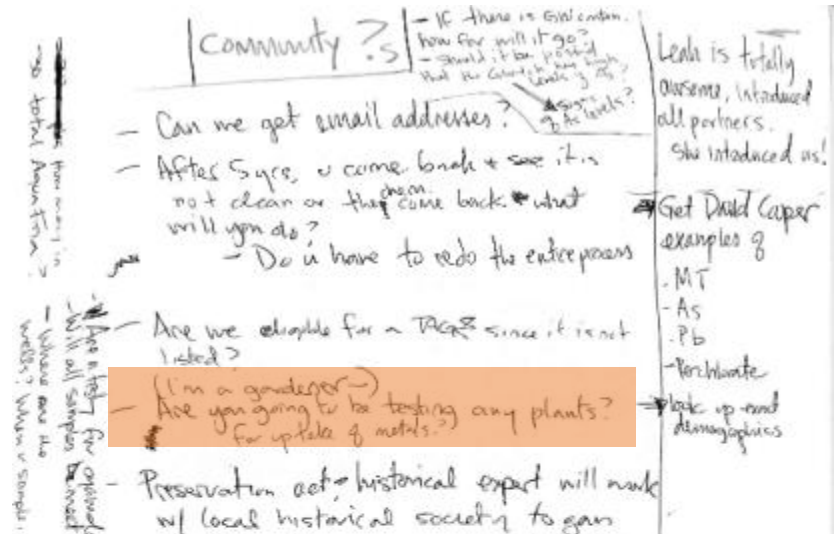 Community ?s
- If there is GW contam.
how far will it go?
- should it be posted
that the has high
levels of As?
signs
of As levels?
- Can we get email addresses?
- After 5 yrs, u come back + see it is
not clean or the chem come back what
will you do?
- Do u have to redo the entire process
- Are we eligible for a since it is not
listed?
(I'm a gardener-)
- Are you going to be testing any plants?
for uptake of metals?
- Preservation act - historical expert will work
w/ local historical society to gain
Leah is totally
awesome, introduced
all partners.
She introduced us!
Get David
examples of
- MT
- As
- Pb
- Perchlorate
look up
demographics
how many in
total
- Are u test for
- Will all samples meet
- Where are the
wells? When u sample,